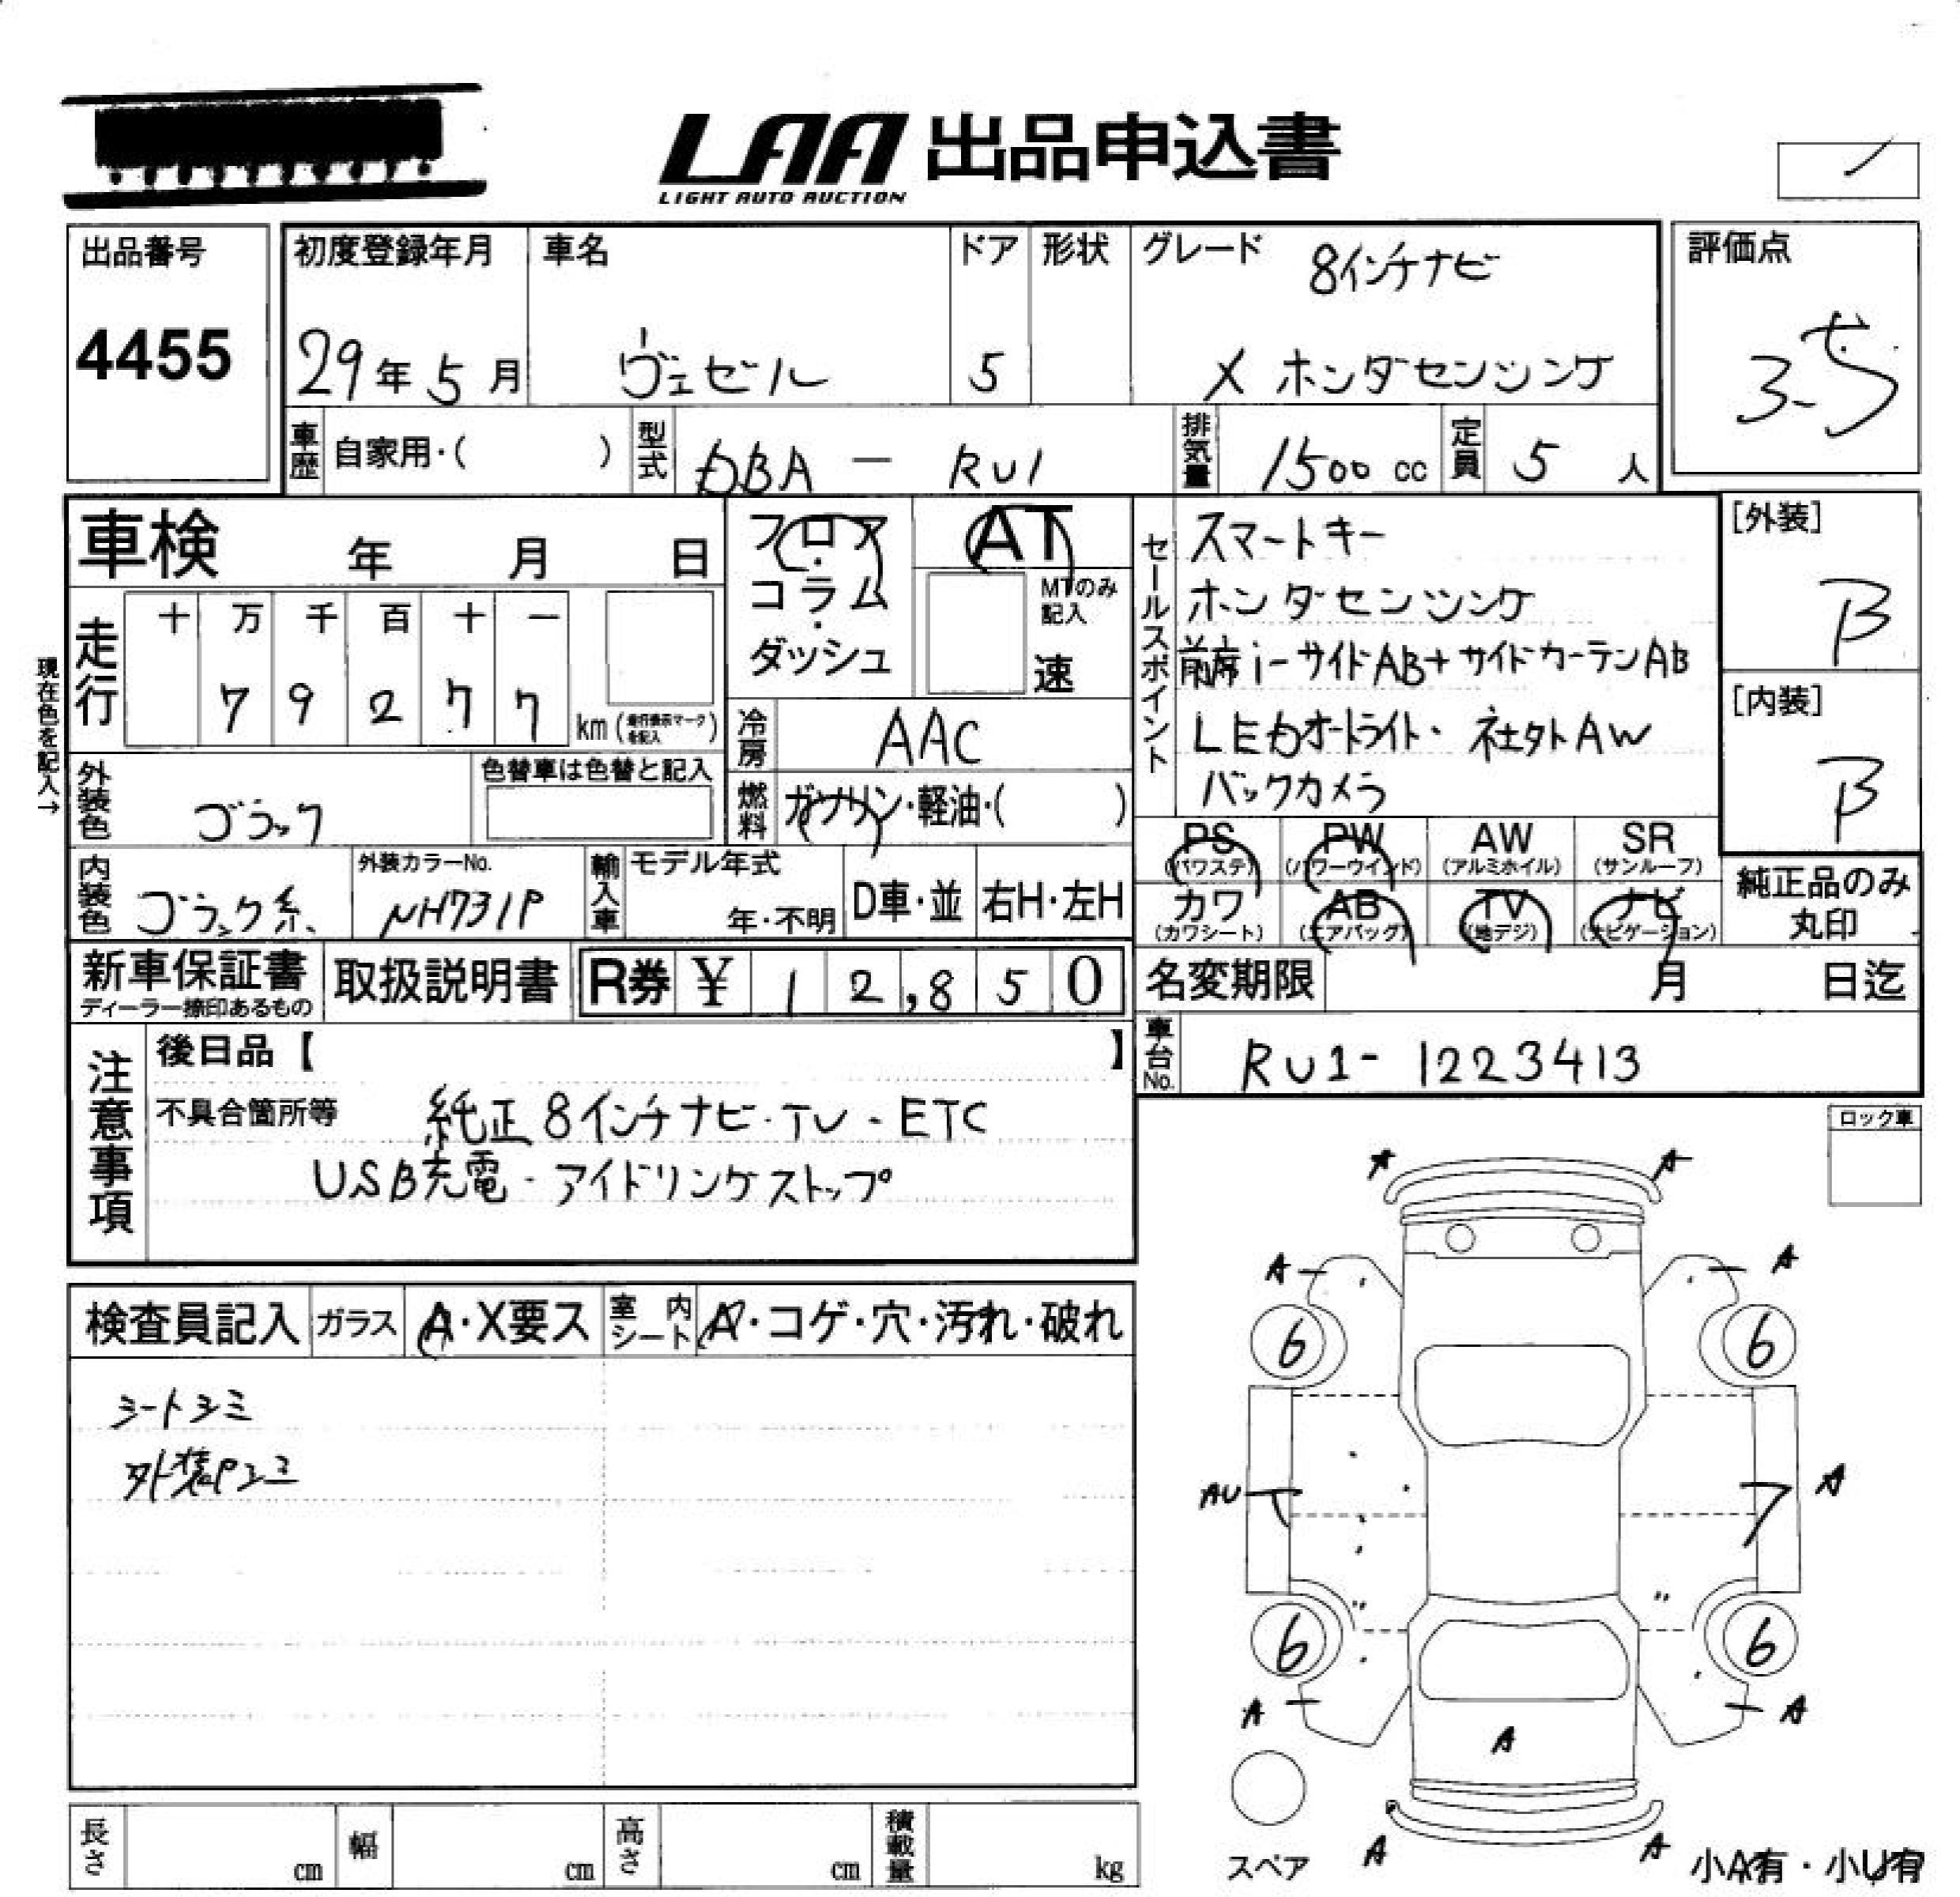 LAA 出品申込書
LIGHT AUTO AUCTION
出品番号
4455
初度登録年月
29年5月
車名
ヴェゼル
ドア
5
形状
グレード
8インチナビ
X ホンダセンシング
評価点
3.5
車歴
自家用・( )
型式
DBA - RU1
排気量
1500cc
定員
5人
車検 年 月 日
フロア・コラム・ダッシュ
AT
MTのみ記入
速
セールスポイント
スマートキー
ホンダセンシング
前席i-サイドAB+サイドカーテンAB
LEDオートライト・社外AW
バックカメラ
[外装]
B
[内装]
B
現在色を記入→
走行
十 万 千 百 十 一
7 9 2 7 7
km (走行表示マークを記入)
冷房
AAC
外装色
ブラック
色替車は色替と記入
燃料
ガソリン・軽油・( )
PS
(パワステ)
PW
(パワーウインド)
AW
(アルミホイル)
SR
(サンルーフ)
内装色
ブラック系
外装カラーNo.
NH731P
輸入車
モデル年式
年・不明
D車・並
右H・左H
カワ
(カワシート)
AB
(エアバッグ)
TV
(地デジ)
ナビ
(ナビゲーション)
純正品のみ
丸印
新車保証書
ディーラー捺印あるもの
取扱説明書
R券 ¥ 12,850
名変期限 月 日迄
注意事項
後日品【 】
不具合箇所等
純正8インチナビ・TV・ETC
USB充電・アイドリングストップ
車台No.
RU1-1223413
ロック車
検査員記入
ガラス
A・X要ス
室内シート
A・コゲ・穴・汚れ・破れ
シートシミ
外装Pシミ
A A
A A
6 6
AU A
6 6
A A
A
A A
スペア
小A有・小U有
長さ cm
幅 cm
高さ cm
積載量 kg